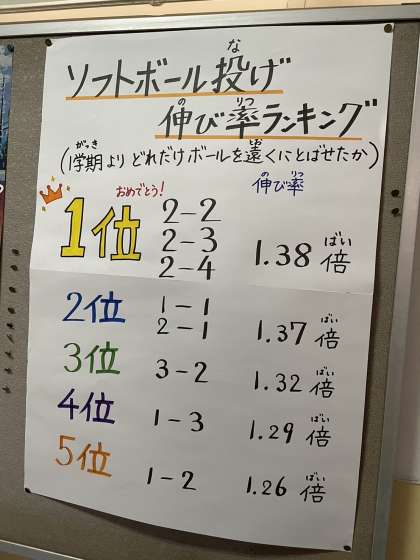 ソフトボール投げ
な
伸び率ランキング
の りつ
(1学期より どれだけボールを遠くにとばせたか)
がっき とお
おめでとう!
伸び率
の りつ
1位
2-2
2-3
2-4
1.38倍
ばい
2位
1-1
2-1
1.37倍
ばい
3位
3-2
1.32倍
ばい
4位
1-3
1.29倍
ばい
5位
1-2
1.26倍
ばい